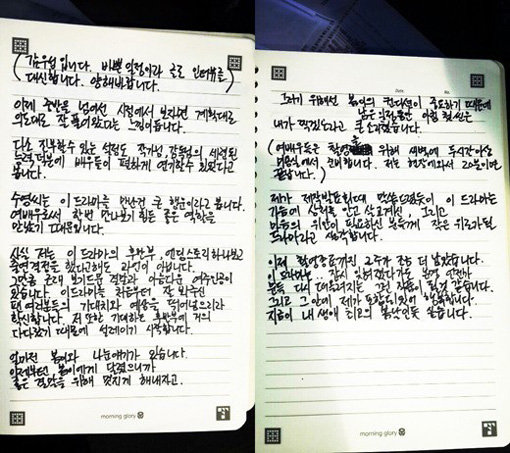 (김우성입니다. 바쁜 일정이라 글로 인터뷰를
대신합니다. 양해바랍니다.)
이제 중반을 넘어선 시점에서 보자면 계획대로
의도대로 잘 흘러왔다는 느낌이듭니다.
다소 진부할수 있는 설정도 작가님, 감독님의 세련된
노력덕분에 배우들이 편하게 연기할수 있었다고
봅니다.
수영씨는 이 드라마를 만난건 큰 행운이라고 봅니다.
여배우로서 한번 만나보기 힘든 좋은 역할을
만났기 때문입니다.
사실 저는 이 드라마의 후반부, 엔딩스토리 하나보고
출연결정을 했다고해도 과언이 아닙니다.
그만큼 근래 보기드문 결말과 아름다운 여주인공이
있습니다. 이 드라마는 처음부터 잘 봐주신
팬 여러분들의 기대치와 예상을 뛰어넘으리라
확신합니다. 저 또한 기대하는 후반부에 거의
다다랐기 때문에 설레이기 시작합니다.
얼마전 봄이와 나눈얘기가 있습니다.
이제부턴 봄이에게 달렸으니까
좋은 결말을 위해 멋지게 해내자고.
morning glory
Date. No.
그러기 위해선 봄이의 컨디션이 중요하기 때문에
남은 의상들만 이럴 찢는건
내가 찍겠다라고 큰소리쳤습니다.
(여배우들은 촬영을 위해 새벽에 두시간이상
미용실에서 준비합니다. 저는 현장에와서 20분이면
끝납니다.)
제가 제작발표회때 말씀드렸듯이 이 드라마는
가슴에 상처를 안고 살고계신, 그리고
마음의 위안이 필요하신 분들께 작은 위로가될
드라마라고 생각합니다.
이제 촬영종료까진 2주가 좀 더 남았습니다.
이 드라마는.. 잠시 잊혀졌다가도 봄에 언젠가
문득 다시 떠올려지는 그런 작품이 될것 같습니다.
그리고 그안에 제가 포함되있어 행복합니다.
지금이 내 생애 최고의 봄날인듯 싶습니다.
morning glory